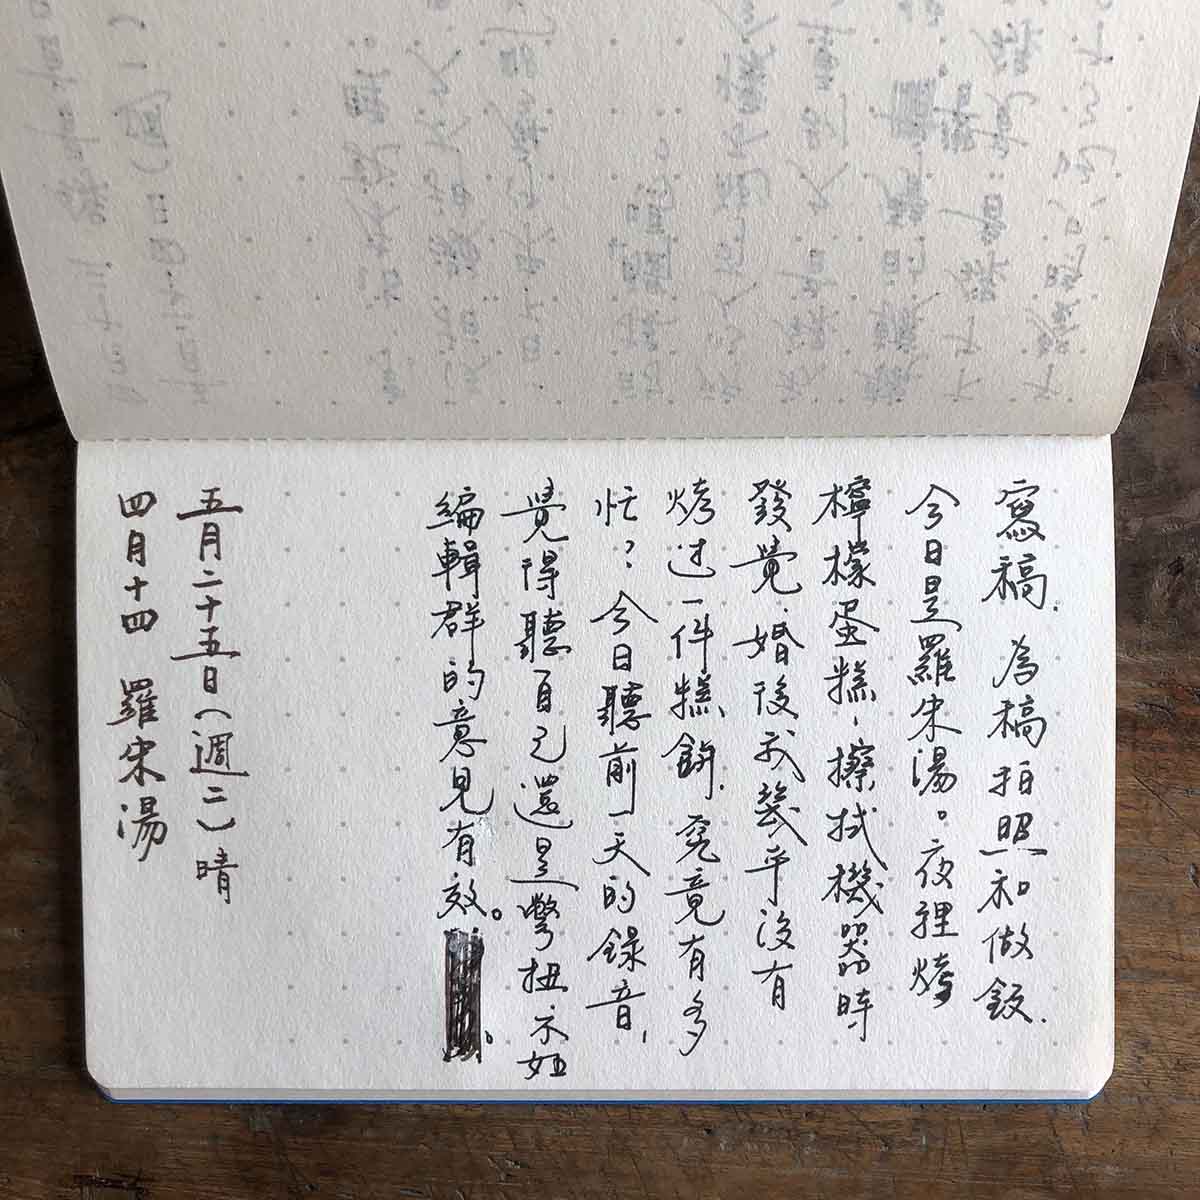 寫稿.為稿拍照和做飯.
今日是羅宋湯。夜裡烤
檸檬蛋糕,擦拭機器時
發覺,婚後我幾乎沒有
烤过一件糕餅.究竟有多
忙?今日聽前一天的錄音,
覺得聽自己還是彆扭不如
編輯群的意見有效。
五月二十五日(週二)晴
四月十四 羅宋湯